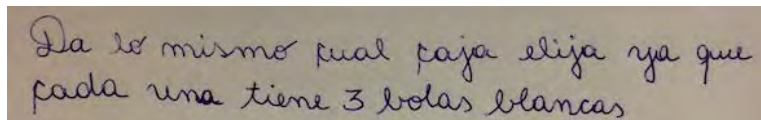 Da lo mismo cual caja elija ya que
cada una tiene 3 bolas blancas